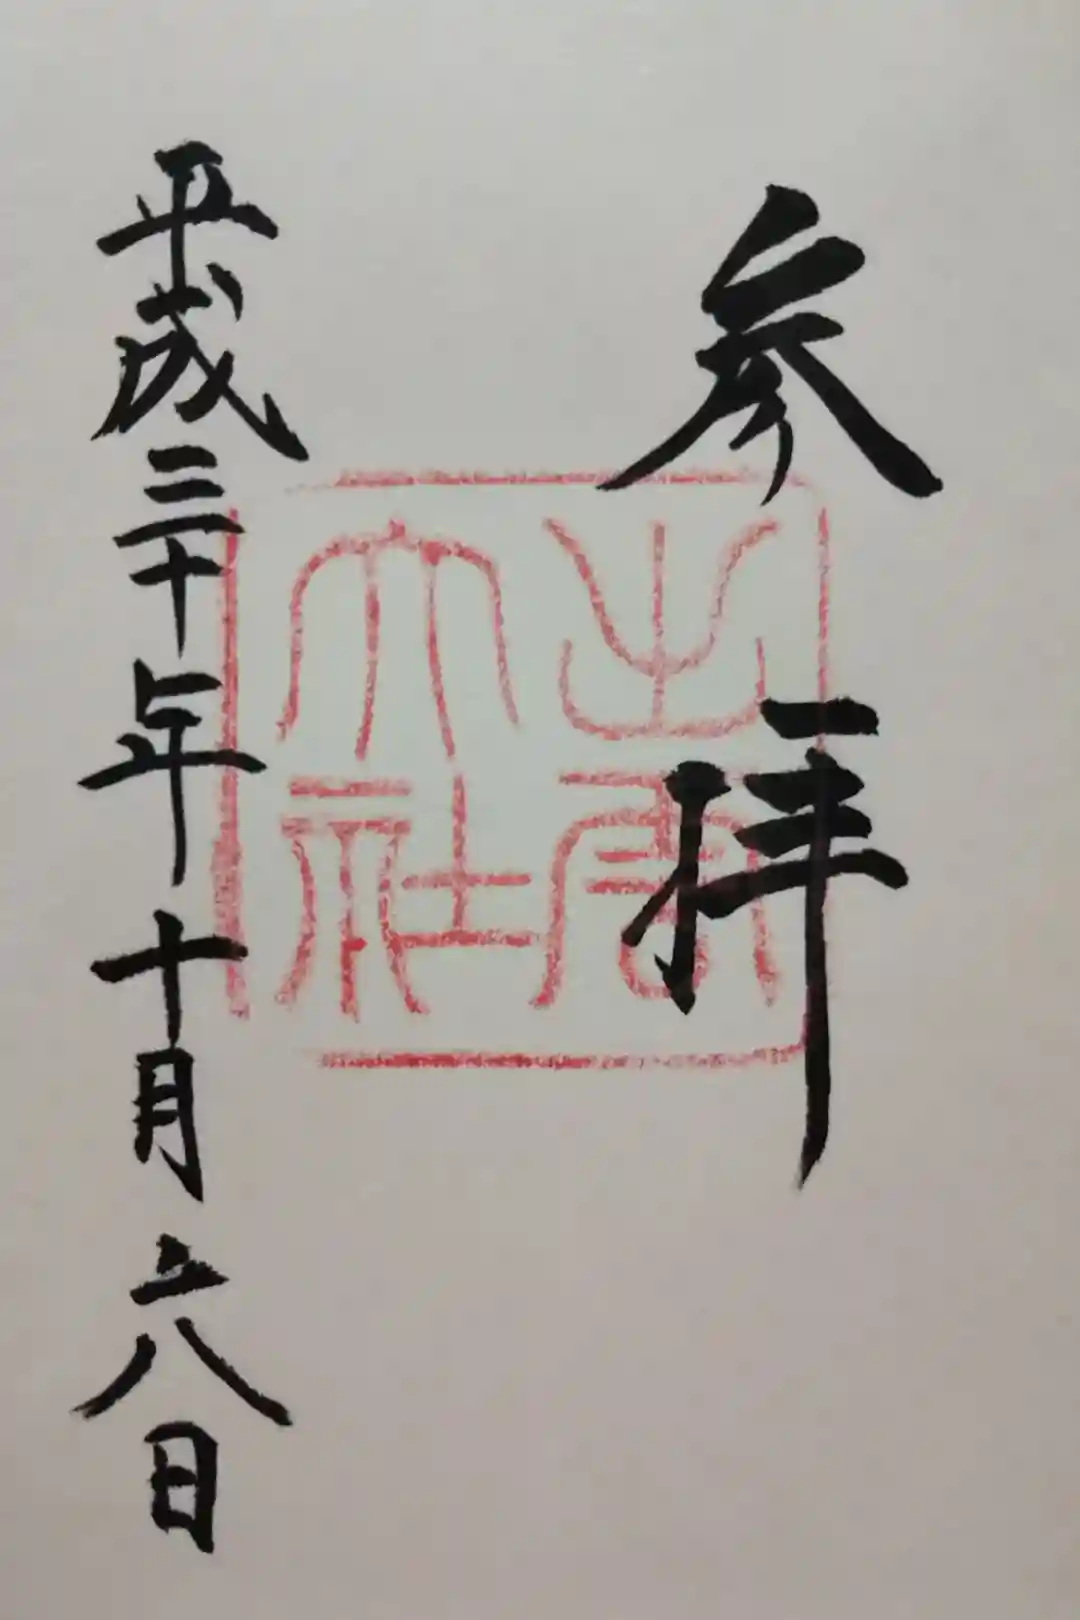 参拝
出雲
大社
平成三十年十月六日